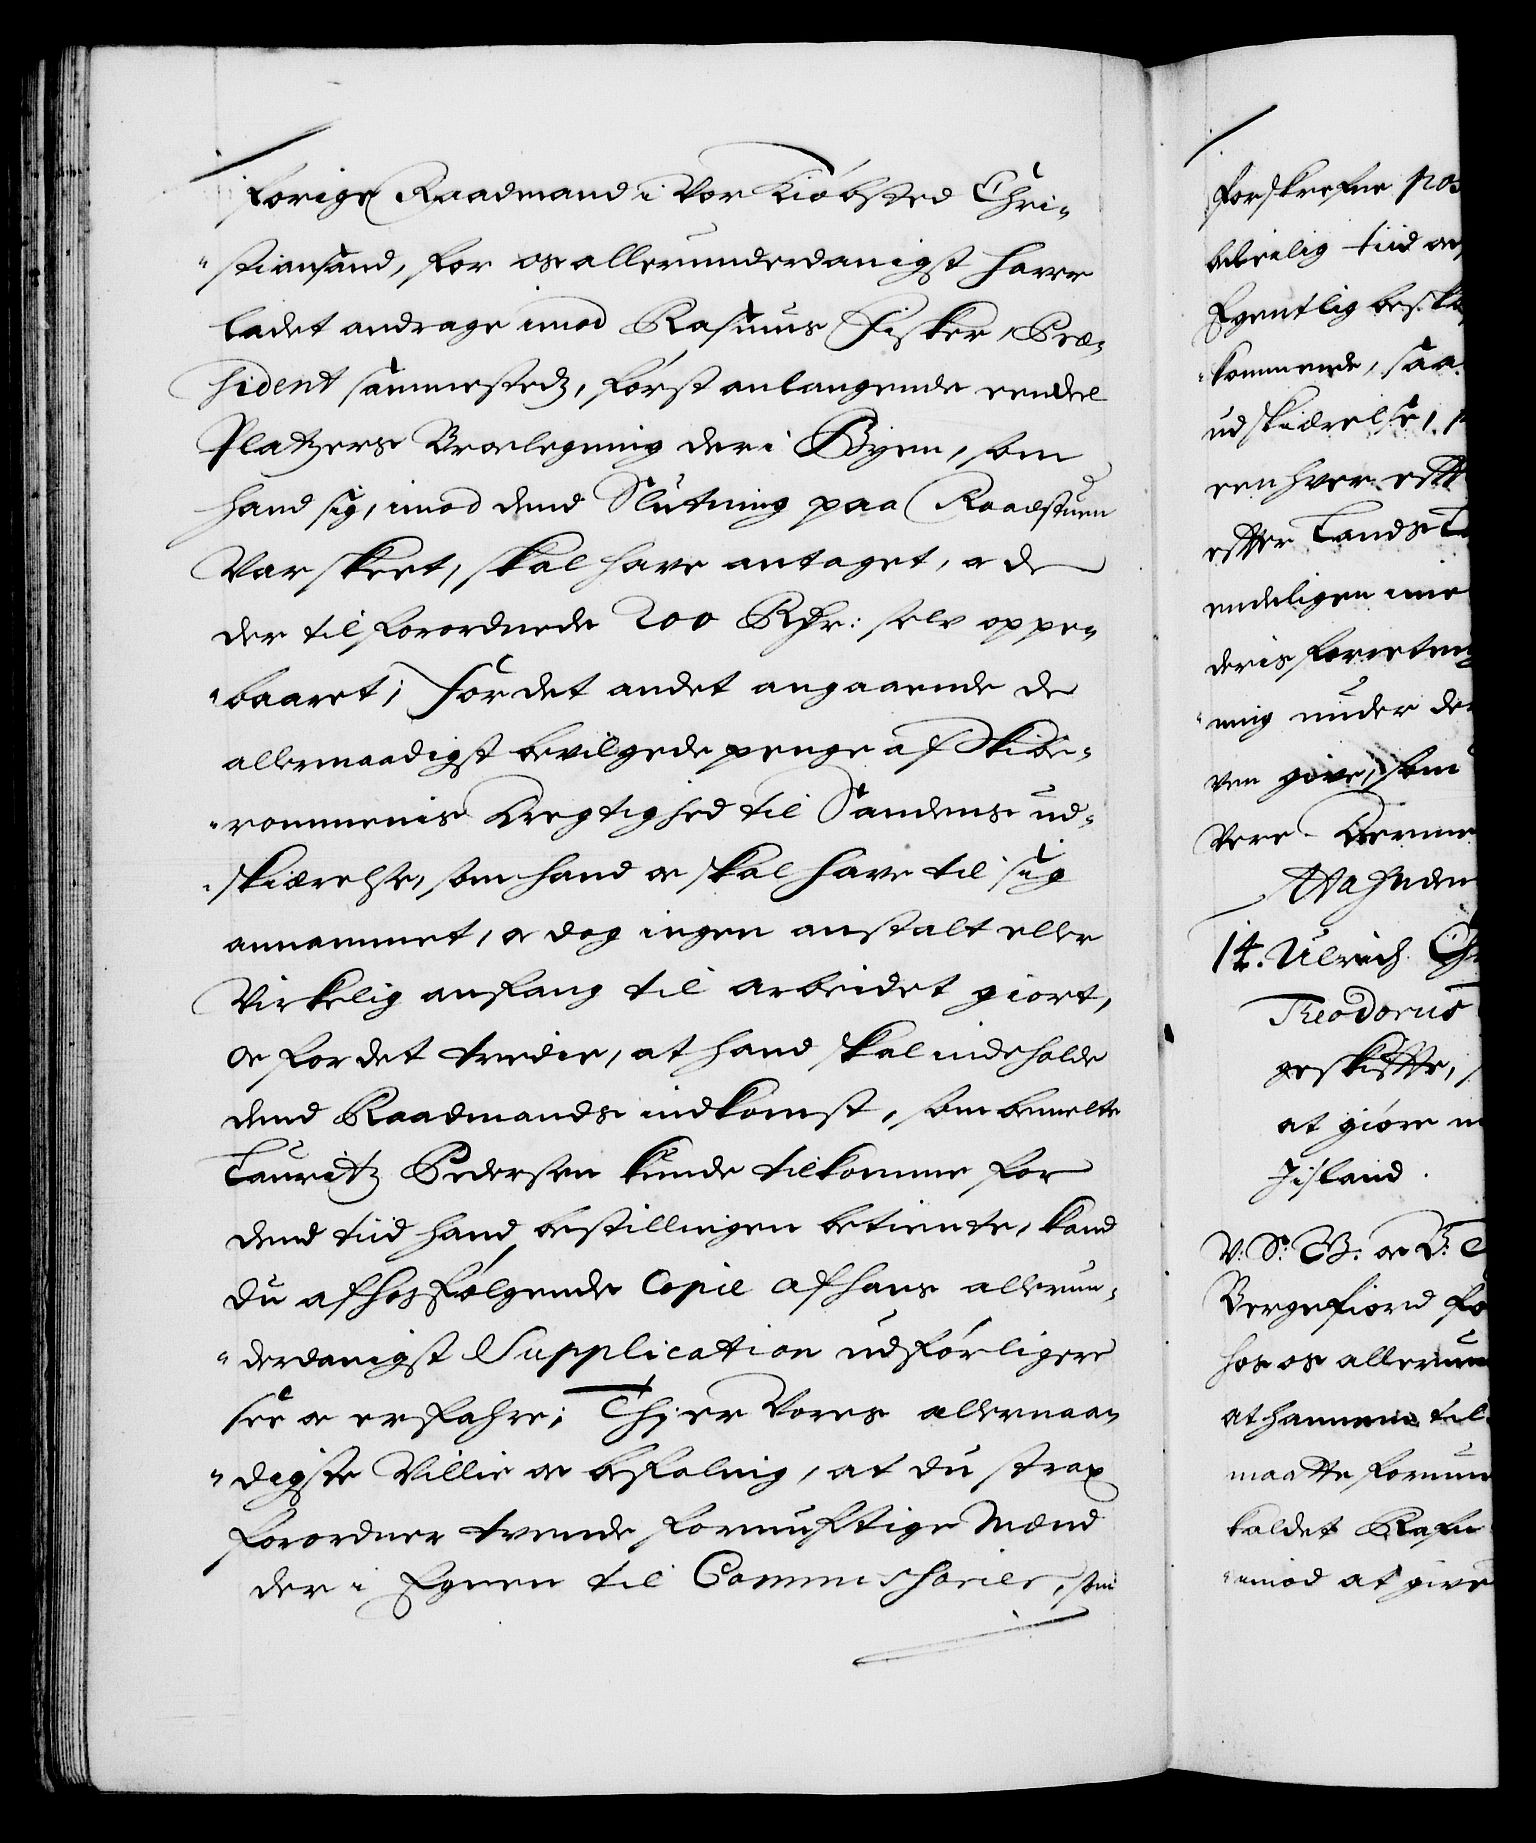 forige Raadmand i Vor Kiøbsted Chri-
"stiansand, for os allerunderdanigst haver
ladet andrage imod Rasmus Fisker, Præ-
sident sammesteds, først anlangende eendeel
Platzers Broelegning der i Byen, som
hand sig, imod dend Slutning paa Raadstuen
Var skeet, skal have antaget, oc de
der til forordnede 200 Rdr: selv oppe-
"baaret; For det andet angaaende de
allernaadigst bevilgede penge af Skibe-
"rommenis Dregtighed til Sandens ud-
"skiærelse, som hand oc skal have til sig
annammet, oc dog ingen anstalt eller
Virkelig anfang til arbeidet giort,
Oc for det tredie, at hand skal indeholde
dend Raadmands indkomst, som bemelte
Lauritz Pedersen kunde tilkomme for
dend tiid hand bestillingen betiente, kand
du af hosfølgende Copie af hans allerun-
"derdanigst Supplication udførligere
see oc erfahre; Thi er Vores allernaa-
"digste Villie oc befaling, at du strax
forordner tvende fornufftige Mænd
der i Egnen til Commissarier, som
forskrefne pos
beleilig tiid oc
Egentlig besk
"kommende, saa
udskiærelse,
een hver efft
effter Lands L
endeligen
deris forretning
"ning under de
ven give, som
Vere. Dermed
14. Ulrich Chr
Theodorus
geskiffte,
at giøre
Jisland.
V: S: G: oc V: T
Bergefiord fo
hos os allerun
at hannem til
maatte forun
kaldet Rafn
"imod at give